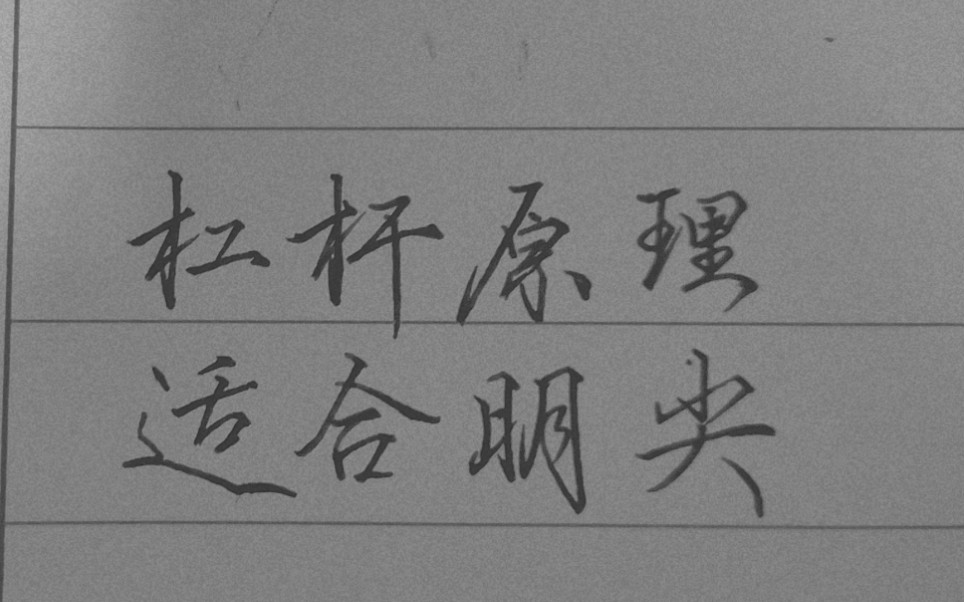 杠杆原理
适合明尖